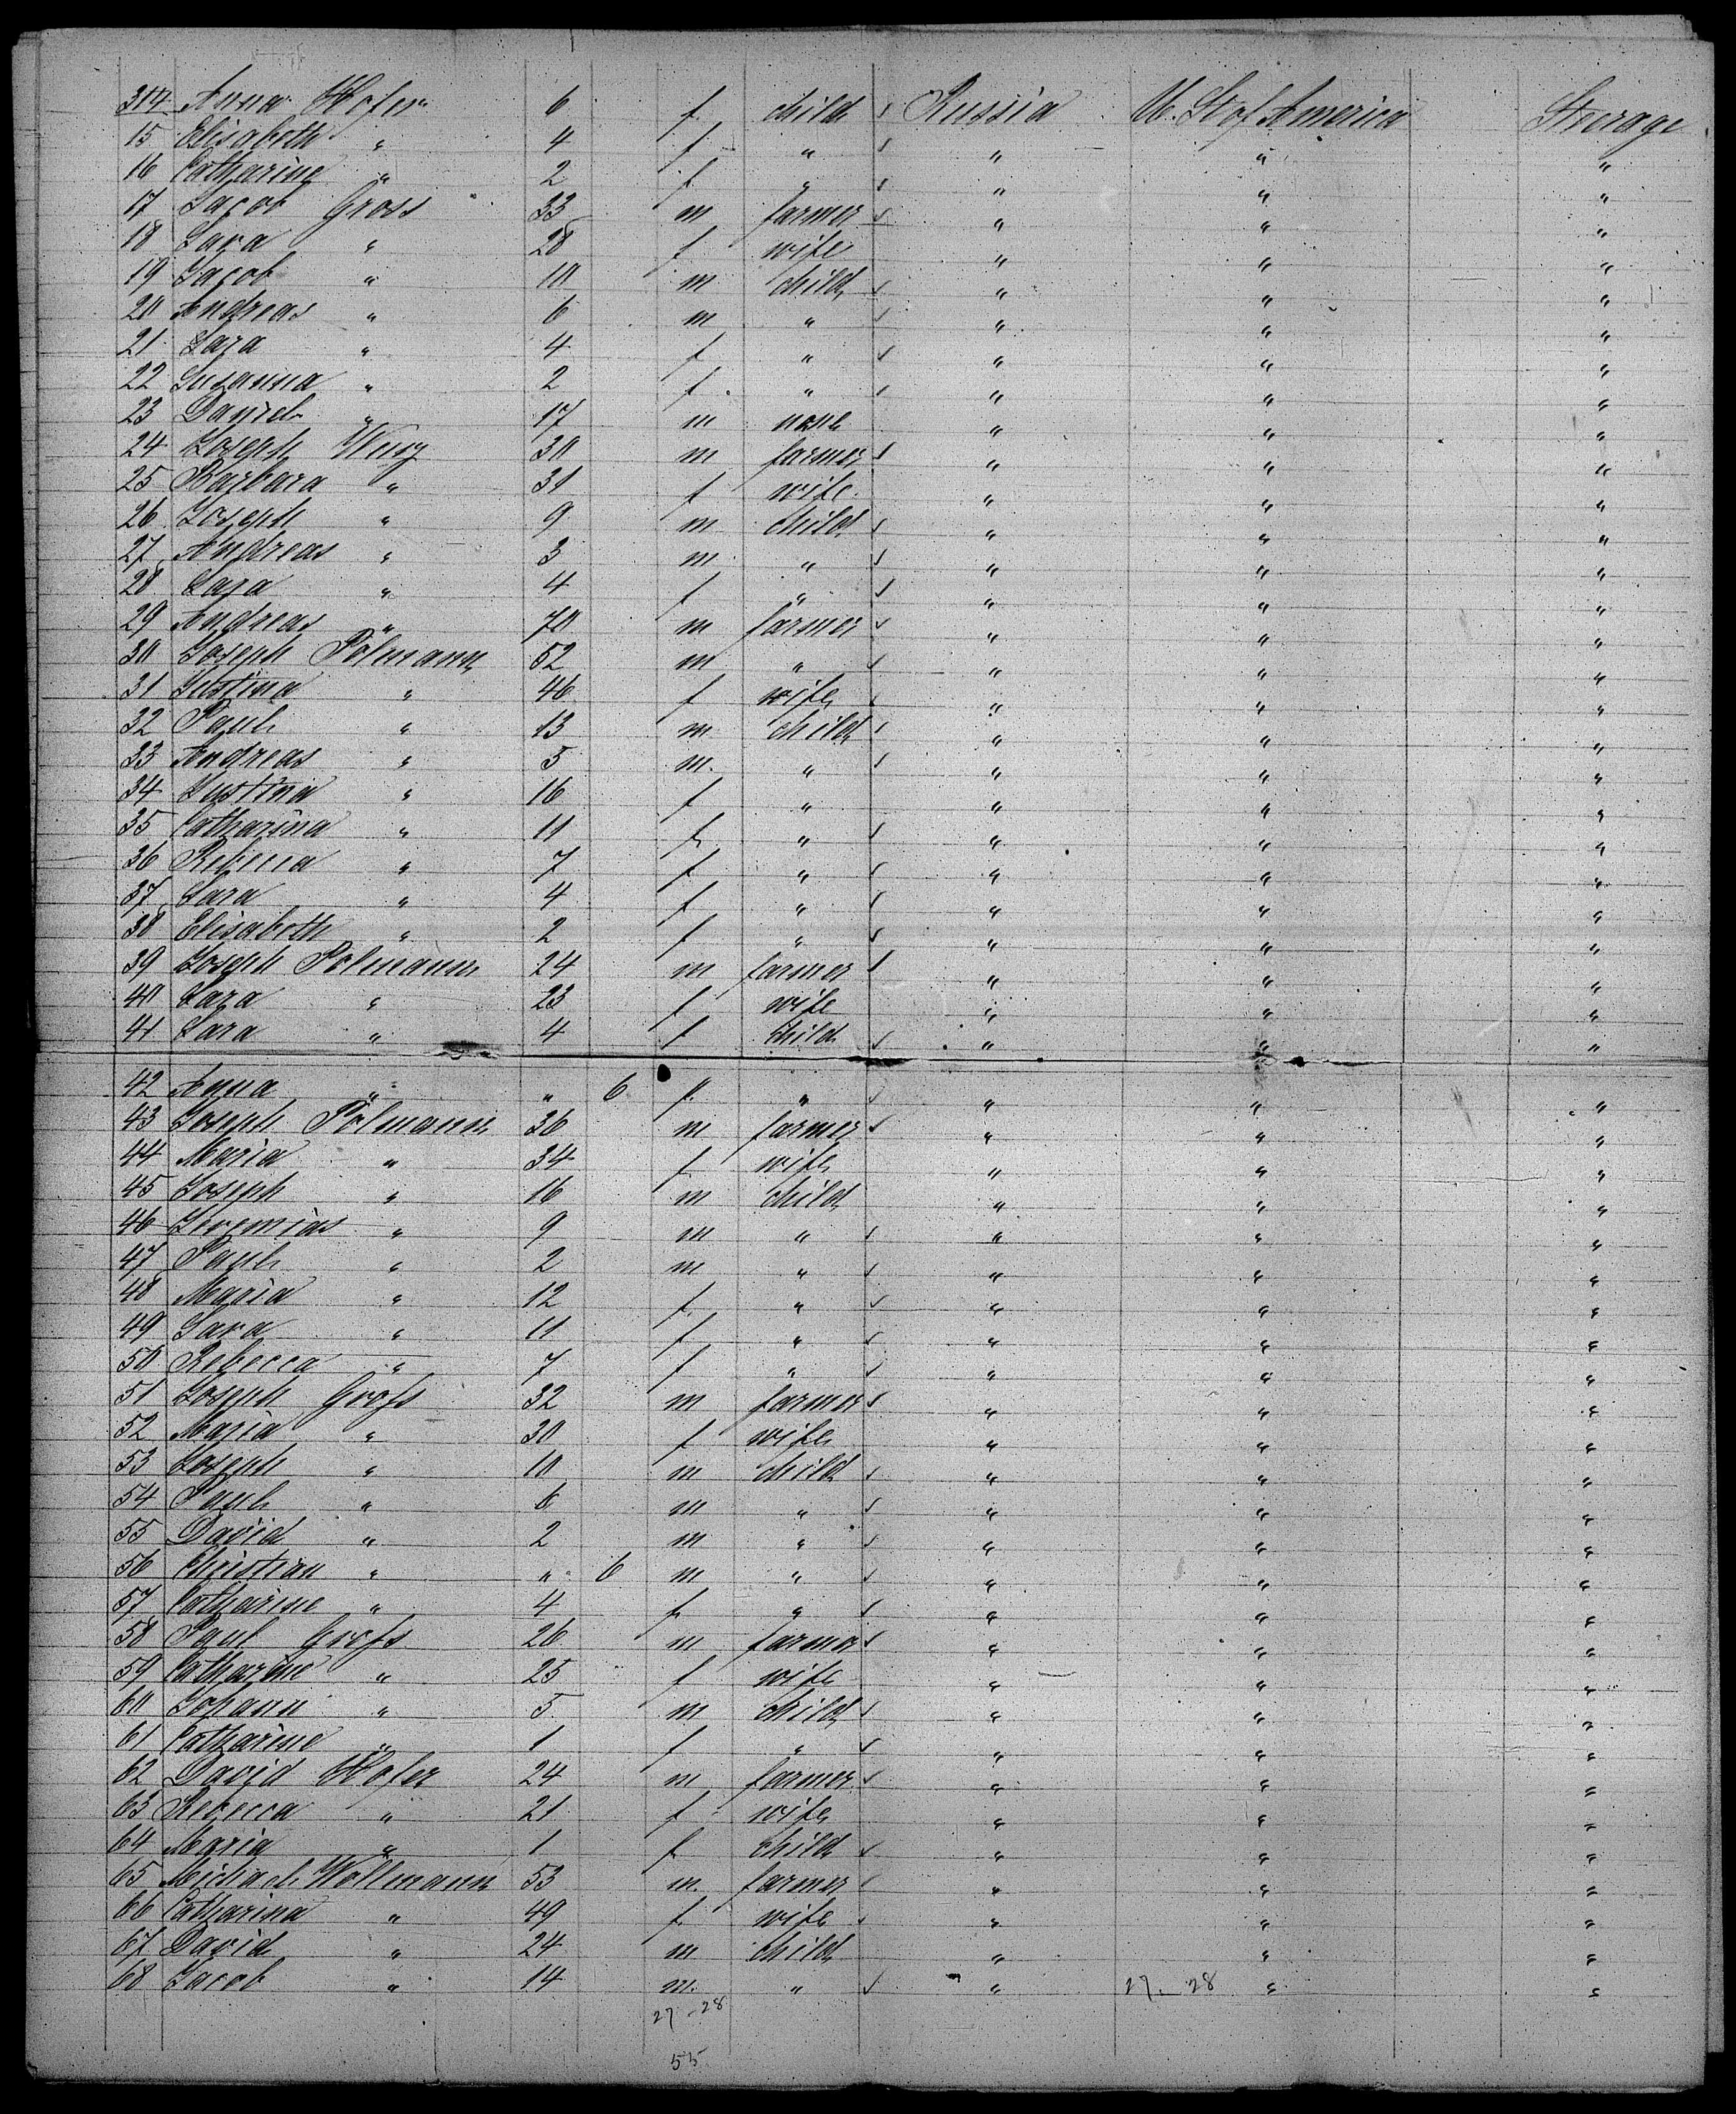 314 Anna Hofer 6 f child ✓ Russia U. St of America Steerage
15 Elisabeth " 4 f " ✓ " " "
16 Catharine " 2 f " ✓ " " "
17 Jacob Gross 33 m farmer ✓ " " "
18 Sara " 28 f wife " " "
19 Jacob " 10 m child ✓ " " "
20 Andreas " 6 m " ✓ " " "
21 Sara " 4 f " ✓ " " "
22 Susanna " 2 f " ✓ " " "
23 Daniel " 17 m none " " "
24 Joseph Wurz 30 m farmer ✓ " " "
25 Barbara " 31 f wife " " "
26 Joseph " 9 m child ✓ " " "
27 Andreas " 3 m " ✓ " " "
28 Sara " 4 f " ✓ " " "
29 Andreas " 70 m farmer ✓ " " "
30 Joseph Polmann 52 m " ✓ " " "
31 Justina " 46 f wife " " "
32 Paul " 13 m child ✓ " " "
33 Andreas " 5 m " ✓ " " "
34 Justina " 16 f " " " "
35 Catharina " 11 f " ✓ " " "
36 Rebecca " 7 f " ✓ " " "
37 Sara " 4 f " ✓ " " "
38 Elisabeth " 2 f " ✓ " " "
39 Joseph Polmann 24 m farmer ✓ " " "
40 Sara " 23 f wife " " "
41 Sara " 4 f child ✓ " " "
42 Anna " " 6 f " ✓ " " "
43 Joseph Polmann 36 m farmer ✓ " " "
44 Maria " 34 f wife " " "
45 Joseph " 16 m child " " "
46 Jeremias " 9 m " ✓ " " "
47 Paul " 2 m " ✓ " " "
48 Maria " 12 f " ✓ " " "
49 Sara " 11 f " ✓ " " "
50 Rebecca " 7 f " ✓ " " "
51 Joseph Groß 32 m farmer ✓ " " "
52 Maria " 30 f wife " " "
53 Joseph " 10 m child ✓ " " "
54 Paul " 6 m " ✓ " " "
55 David " 2 m " ✓ " " "
56 Christian " " 6 m " ✓ " " "
57 Catharine " 4 f " ✓ " " "
58 Paul Groß 26 m farmer ✓ " " "
59 Catharine " 25 f wife " " "
60 Johann " 5 m child ✓ " " "
61 Catharine " 1 f " ✓ " " "
62 David Hofer 24 m farmer ✓ " " "
63 Rebecca " 21 f wife " " "
64 Maria " 1 f child ✓ " " "
65 Michael Wollmann 53 m farmer ✓ " " "
66 Catharina " 49 f wife " " "
67 David " 24 m child " " "
68 Jacob " 14 m " ✓ " 27-28 " "
27-28
55